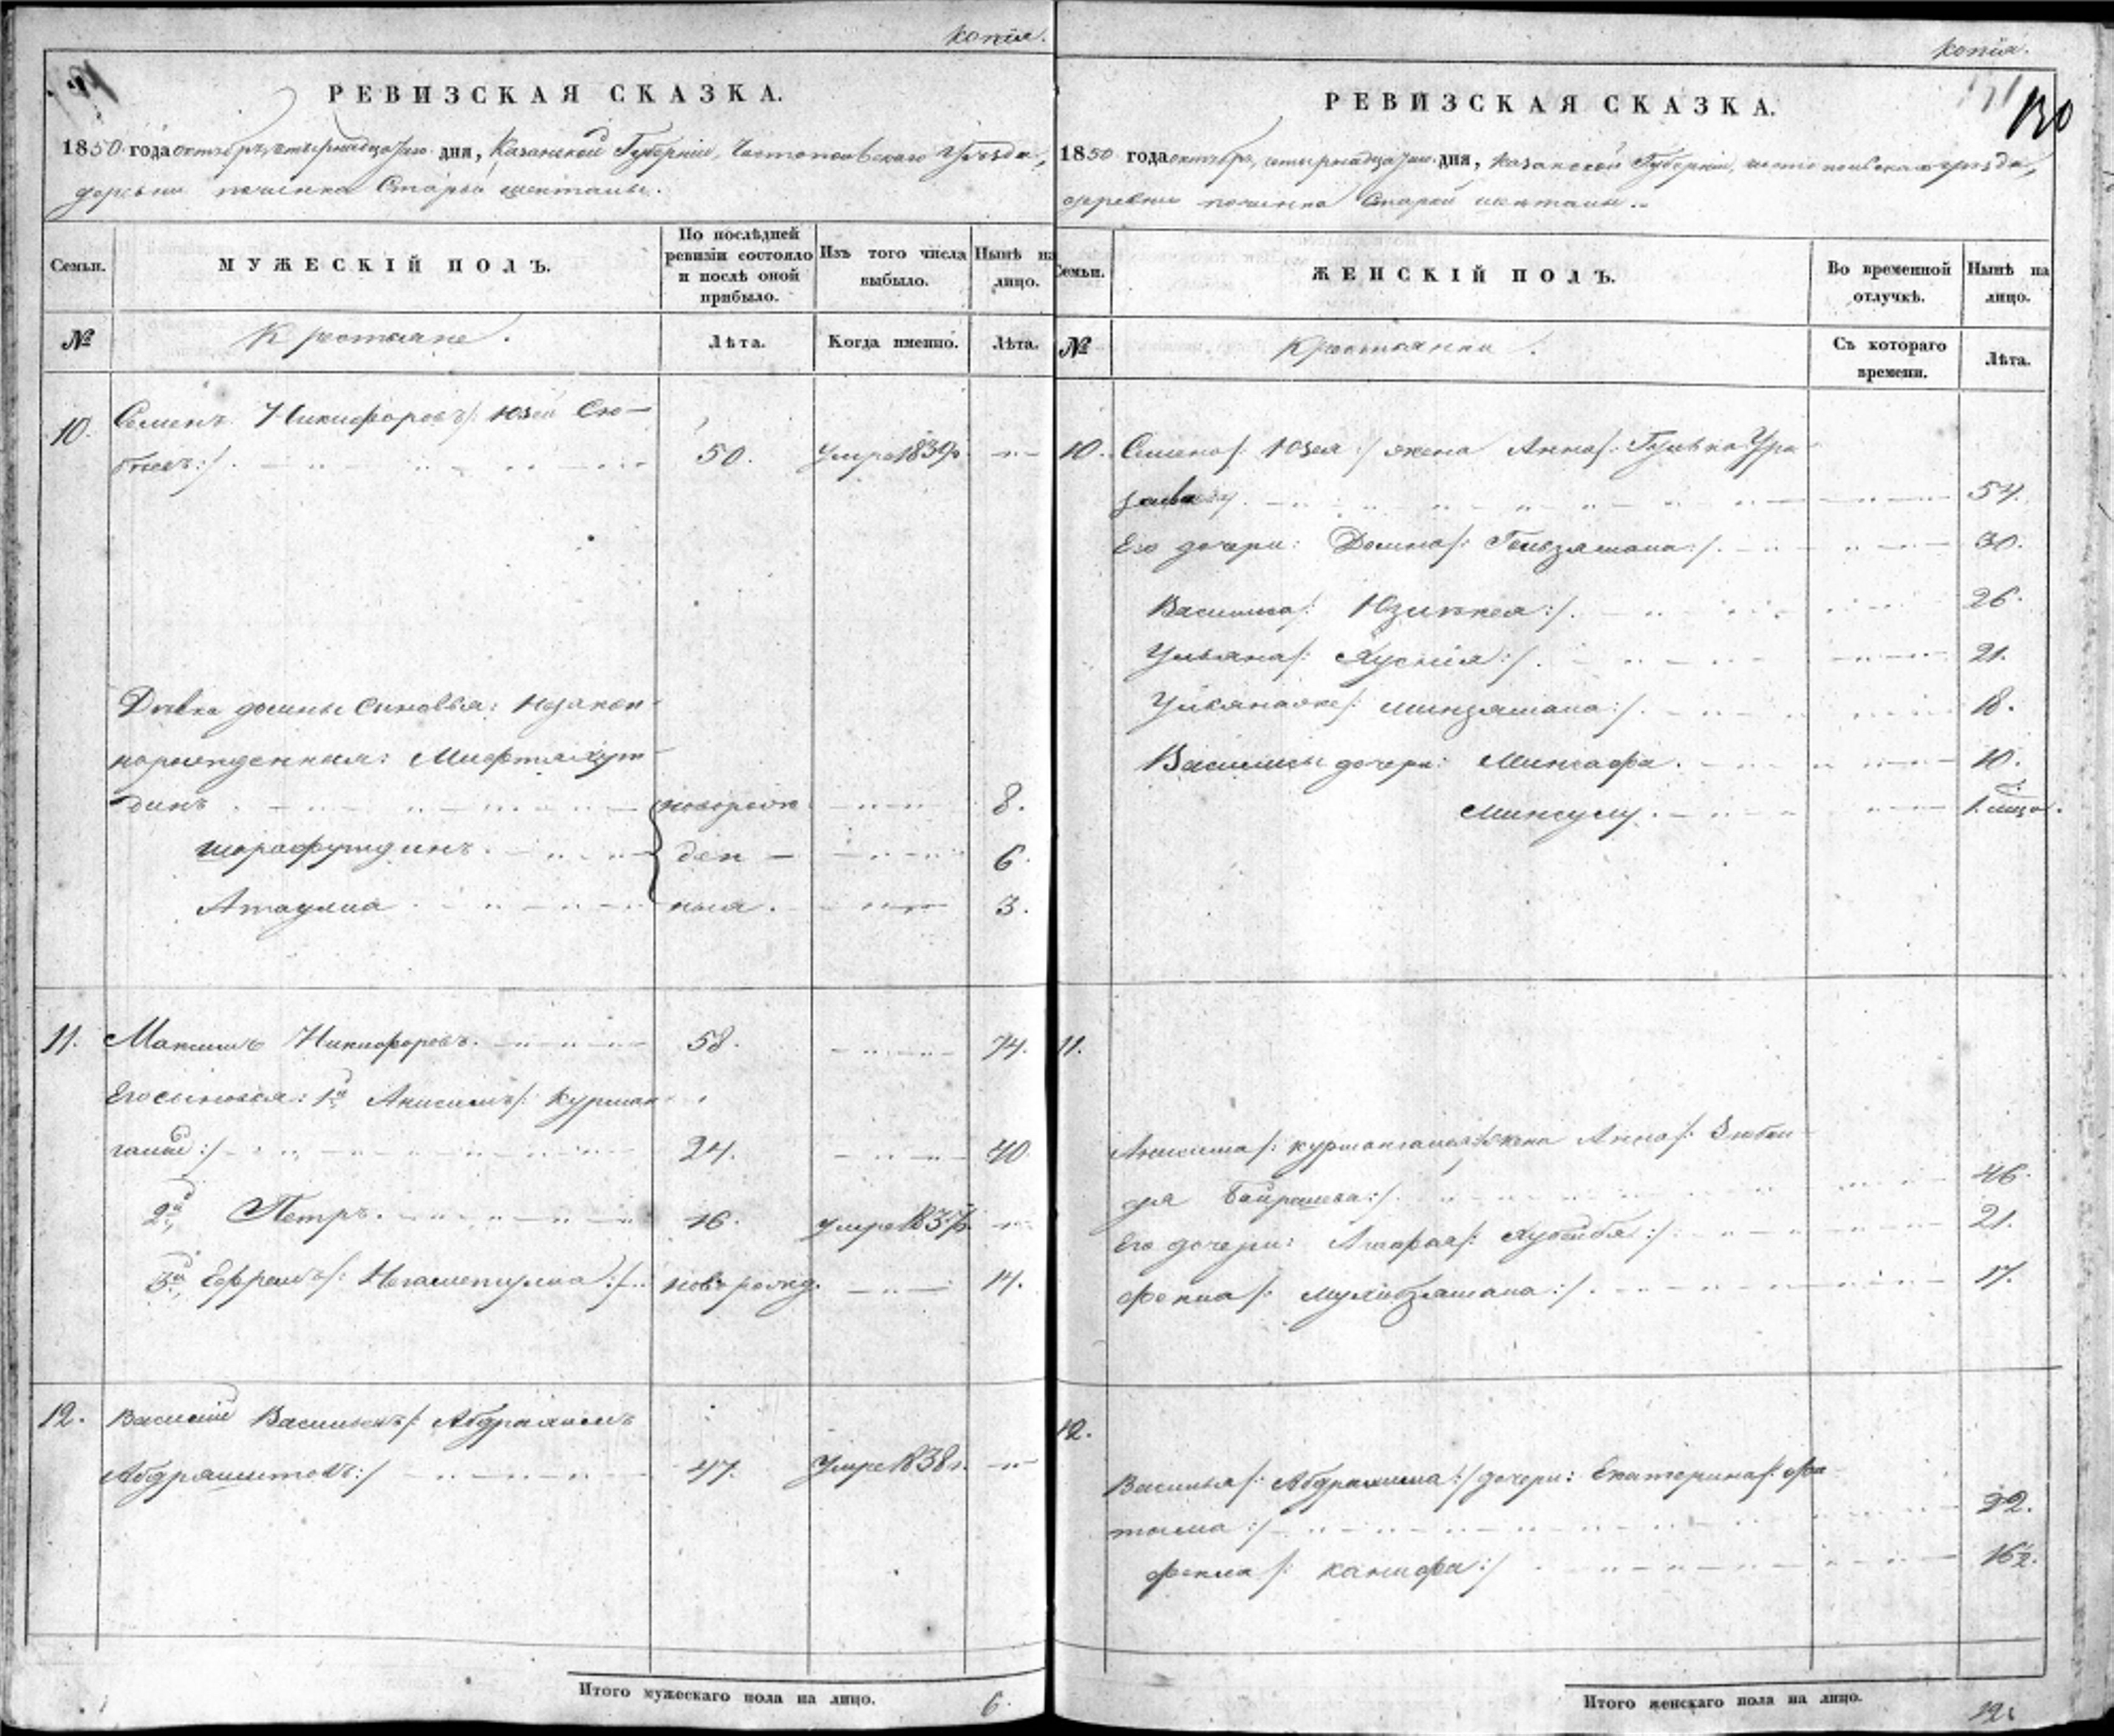 копія.
РЕВИЗСКАЯ СКАЗКА.
1850 года октября четырнадцатаго дня, Казанской Губерніи, Чистопольскаго Уѣзда,
деревни починка Старой
Семьи.
МУЖЕСКІЙ ПОЛЪ.
По послѣдней ревизіи состояло и послѣ оной прибыло.
Изъ того числа выбыло.
Нынѣ на лицо.
№
Крестьяне.
Лѣта.
Когда именно.
Лѣта.
10. Семенъ Никифоровъ /: Юзей Сю-
50. Умре 1839
Дѣвки домны сыновья: незакон-
норожденныя: Мифтяхут-
динъ новорож 8.
Шарафутдинъ ден 6.
Атаулла ныя. 3.
11. Максимъ Никифоровъ. 58. 74.
Его сыновья: 1й Анисимъ /: Курман-
галий :/ 24. 40.
2й Петръ. 16. Умре 1837
3й Ефремъ /: Негаметулла :/ новорожд. 14.
12. Василий Васильевъ /: Абдрахимъ
Абдряшитовъ :/ 47. Умре 1838 г.
Итого мужескаго пола на лицо. 6.
копія.
130
РЕВИЗСКАЯ СКАЗКА.
1850 года октября, четырнадцатаго дня, Казанской Губерніи, чистопольскаго уѣзда,
деревни починка Старой
Семьи.
ЖЕНСКІЙ ПОЛЪ.
Во временной отлучкѣ.
Нынѣ на лицо.
№
Крестьянки.
Съ котораго времени.
Лѣта.
10. Семена /: Юзея :/ жена Анна /:
54.
Его дочери: Домна /: Гользямала :/. 30.
Василиса /: :/. 26.
Ульяна /: Хуснія :/. 21.
Ульяна же /: минзямала :/. 18.
Василисы дочери: Минсафа. 10.
Минсулу.
11.
Анисима /: курмангалея :/ жена Анна /: Зюбяй-
дя :/. 46.
Его дочери: /: Хубейбя :/. 21.
Фекла /: мухибзямала :/. 17.
12.
Василья /: Абдрахима :/ дочери: Екатерина /: Фа-
тыма :/ 22.
Фекла /: Ханифа :/
Итого женскаго пола на лицо.